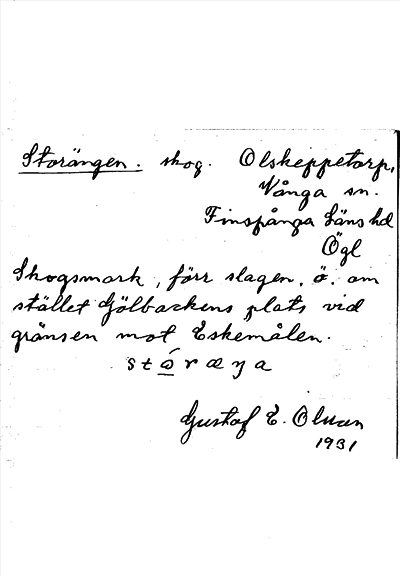 Storängen. skog. Olskeppetorp,
Vånga sn.
Finspånga Läns hd
Ögl
Skogsmark, förr slagen, ö. om
stället Gölbackens plats vid
gränsen mot Eskemålen.
Gustaf E. Olsson
1931